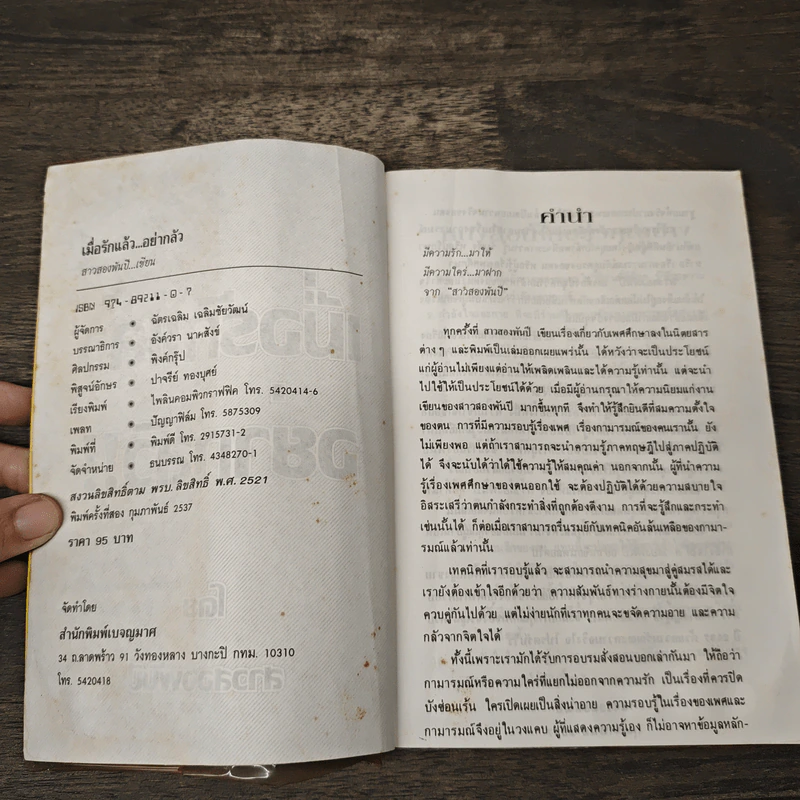 เมื่อรักแล้ว...อย่ากลัว
สาวสองพันปี...เขียน
ISBN 974-89211-0-7
ผู้จัดการ • ฉัตรเฉลิม เฉลิมชัยวัฒน์
บรรณาธิการ • อังค์วรา นาคสังข์
ศิลปกรรม • พิงค์กรุ๊ป
พิสูจน์อักษร • ปาจรีย์ ทองบุศย์
เรียงพิมพ์ • ไพลินคอมพิวกราฟฟิค โทร. 5420414-6
เพลท • ปัญญาฟิล์ม โทร. 5875309
พิมพ์ที่ • พิมพ์ดี โทร. 2915731-2
จัดจำหน่าย • ธนบรรณ โทร. 4348270-1
สงวนลิขสิทธิ์ตาม พรบ. ลิขสิทธิ์ พ.ศ. 2521
พิมพ์ครั้งที่สอง กุมภาพันธ์ 2537
ราคา 95 บาท
จัดทำโดย
สำนักพิมพ์เบจญมาศ
34 ถ.ลาดพร้าว 91 วังทองหลาง บางกะปิ กทม. 10310
โทร. 5420418
คำนำ
มีความรัก...มาให้
มีความใคร่...มาฝาก
จาก "สาวสองพันปี"
ทุกครั้งที่ สาวสองพันปี เขียนเรื่องเกี่ยวกับเพศศึกษาลงในนิตยสาร
ต่างๆ และพิมพ์เป็นเล่มออกเผยแพร่นั้น ได้หวังว่าจะเป็นประโยชน์
แก่ผู้อ่านไม่เพียงแต่อ่านให้เพลิดเพลินและได้ความรู้เท่านั้น แต่จะนำ
ไปใช้ให้เป็นประโยชน์ได้ด้วย เมื่อมีผู้อ่านกรุณาให้ความนิยมแก่งาน
เขียนของสาวสองพันปี มากขึ้นทุกที จึงทำให้รู้สึกยินดีที่สมความตั้งใจ
ของตน การที่มีความรอบรู้เรื่องเพศ เรื่องกามารมณ์ของคนเรานั้น ยัง
ไม่เพียงพอ แต่ถ้าเราสามารถจะนำความรู้ภาคทฤษฎีไปสู่ภาคปฏิบัติ
ได้ จึงจะนับได้ว่าได้ใช้ความรู้ให้สมคุณค่า นอกจากนั้น ผู้ที่นำความ
รู้เรื่องเพศศึกษาของตนออกใช้ จะต้องปฏิบัติได้ด้วยความสบายใจ
อิสระเสรีว่าตนกำลังกระทำสิ่งที่ถูกต้องดีงาม การที่จะรู้สึกและกระทำ
เช่นนั้นได้ ก็ต่อเมื่อเราสามารถรื่นรมย์กับเทคนิคอันล้นเหลือของกามา-
รมณ์แล้วเท่านั้น
เทคนิคที่เรารอบรู้แล้ว จะสามารถนำความสุขมาสู่คู่สมรสได้และ
เรายังต้องเข้าใจอีกด้วยว่า ความสัมพันธ์ทางร่างกายนั้นต้องมีจิตใจ
ควบคู่กันไปด้วย แต่ไม่ง่ายนักที่เราทุกคนจะขจัดความอาย และความ
กลัวจากจิตใจได้
ทั้งนี้เพราะเรามักได้รับการอบรมสั่งสอนบอกเล่ากันมา ให้ถือว่า
กามารมณ์หรือความใคร่ที่แยกไม่ออกจากความรัก เป็นเรื่องที่ควรปิด
บังซ่อนเร้น ใครเปิดเผยเป็นสิ่งน่าอาย ความรอบรู้ในเรื่องของเพศและ
กามารมณ์จึงอยู่ในวงแคบ ผู้ที่แสดงความรู้เอง ก็ไม่อาจหาข้อมูลหลัก-